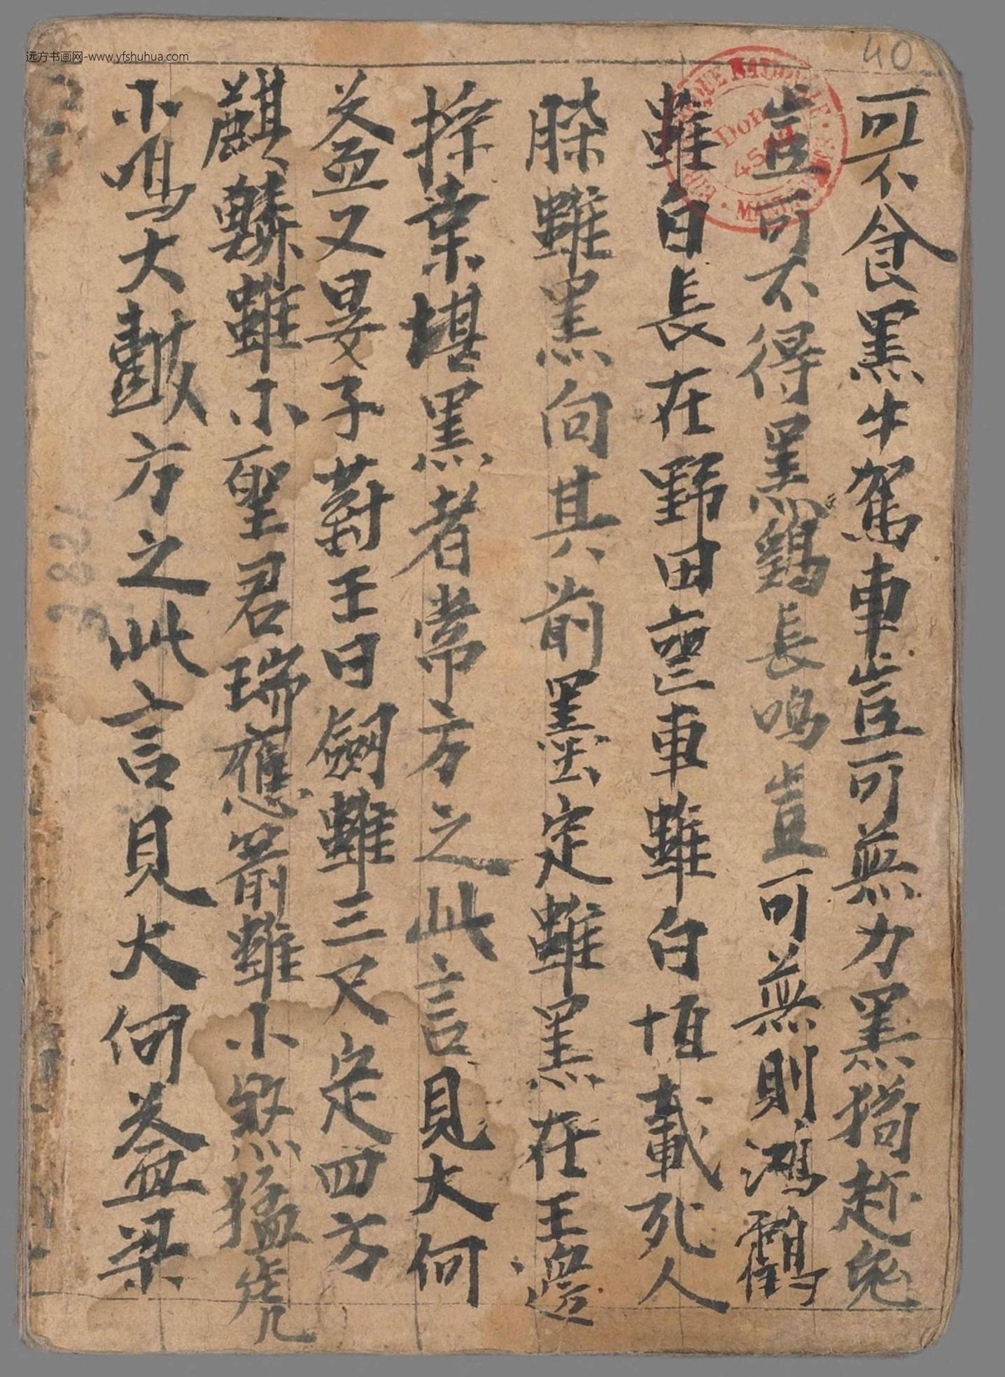 远方书画网-www.yfshuhua.com
40
可不食黑牛駕車豈可無力黑狗趂兔
豈可不得黑鷄長鳴豈可無則鴻鶴
雖白長在野田喪車雖白恒載死人
雖黑向其前墨定雖黑在王邊
採桒堪黑者常方之此言見大何
益又晏子對王曰劒雖三尺定四方
麒驎雖小聖君瑞應箭雖小煞猛虎
小鳴大皷方之此言見大何益梁
3821